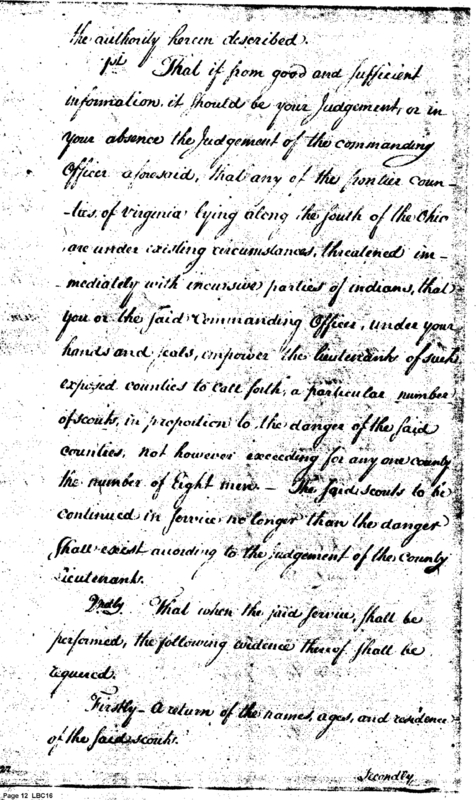 the authority herein described.
1st That if from good and sufficient
information, it should be your Judgement, or in
your absence the Judgement of the commanding
Officer aforesaid, that any of the frontier coun-
-ties, of Virginia lying along the south of the Ohio
are under existing circumstances, threatened im-
-mediately with incursive parties of indians, that
you or the said Commanding Officer, under your
hands and seals, empower the lieutenants of such
exposed counties to call forth, a particular number
of scouts, in propotion to the danger of the said
counties, not however exceeding for any one county
the number of Eight men - The said scouts to be
continued in service no longer than the danger
shall exist acording to the judgement of the County
Lieutenants.
2ndly That when the said service, shall be
performed, the following evidence thereof shall be
required.
Firstly - A return of the names, ages, and residence
of the said scouts.
Secondly
27
Page 12 LBC16